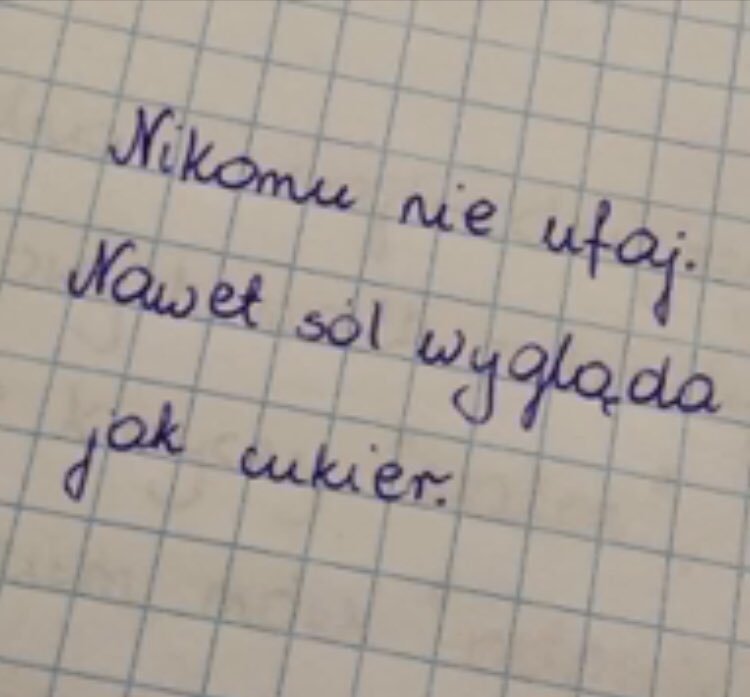 Nikomu nie ufaj.
Nawet sól wygląda
jak cukier.